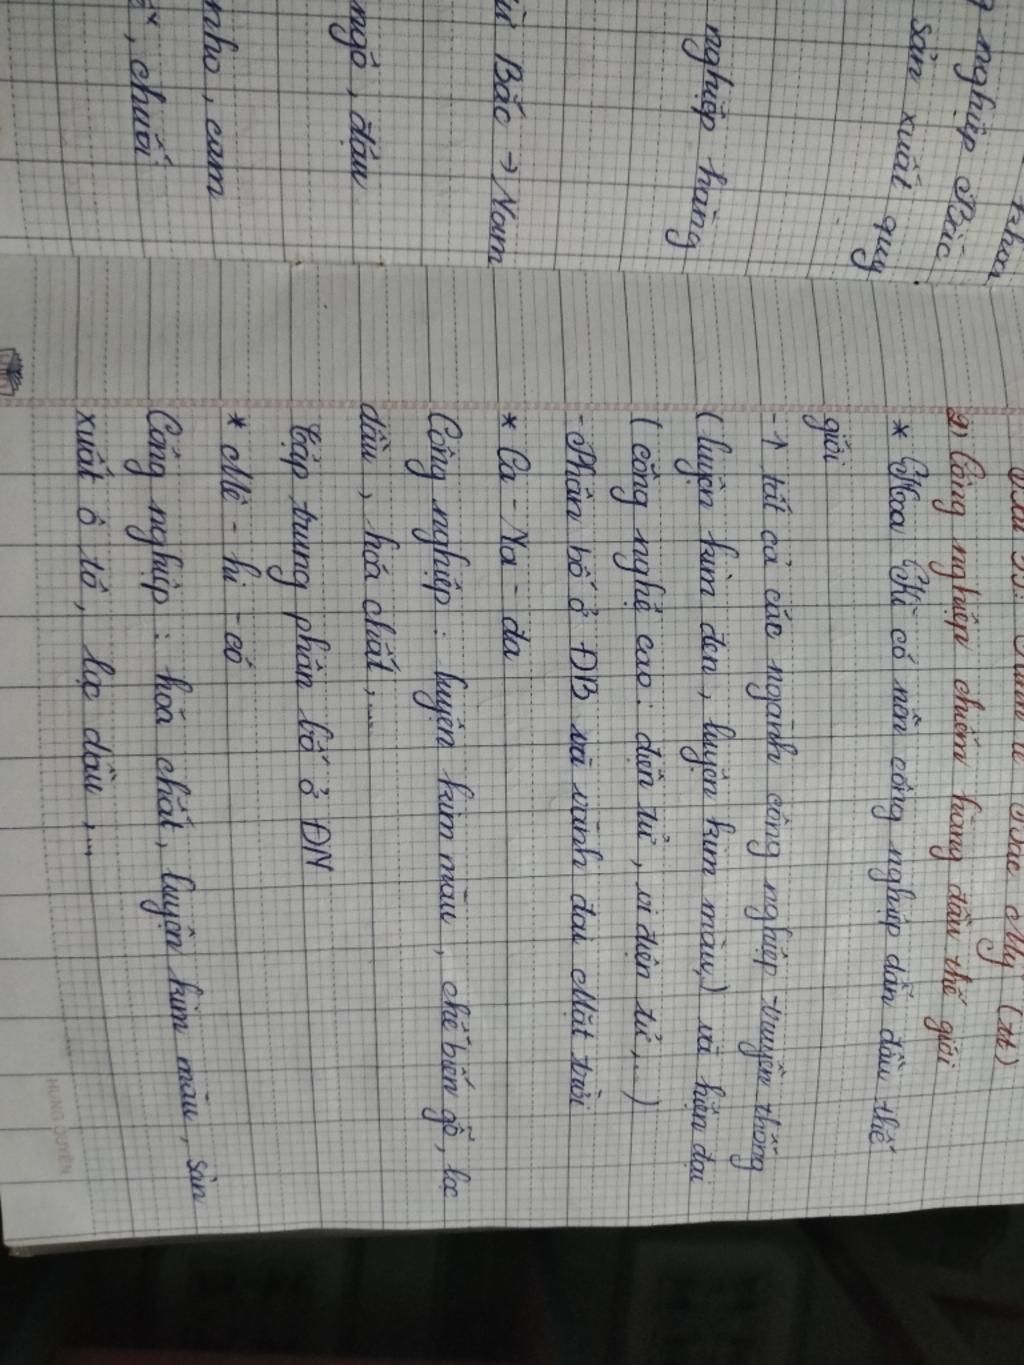 nghiệp Bắc
sản xuất quy
nghiệp hàng
Bắc → Nam
ngô, đậu
nho, cam
, chuối
Kinh tế Bắc Mỹ (tt)
2) Công nghiệp chiếm hàng đầu thế giới
* Hoa Kì có nền công nghiệp dẫn đầu thế
giới
- tất cả các ngành công nghiệp truyền thống
(luyện kim đen, luyện kim màu,) và hiện đại
(công nghệ cao: điện tử, vi điện tử,...)
- Phân bố ở ĐB và vành đai Mặt trời
* Ca - Na - da
Công nghiệp: luyện kim màu, chế biến gỗ, lọc
dầu, hóa chất,...
tập trung phân bố ở ĐN
* Mê - hi - cô
Công nghiệp: hoá chất, luyện kim màu, sản
xuất ô tô, lọc dầu,...